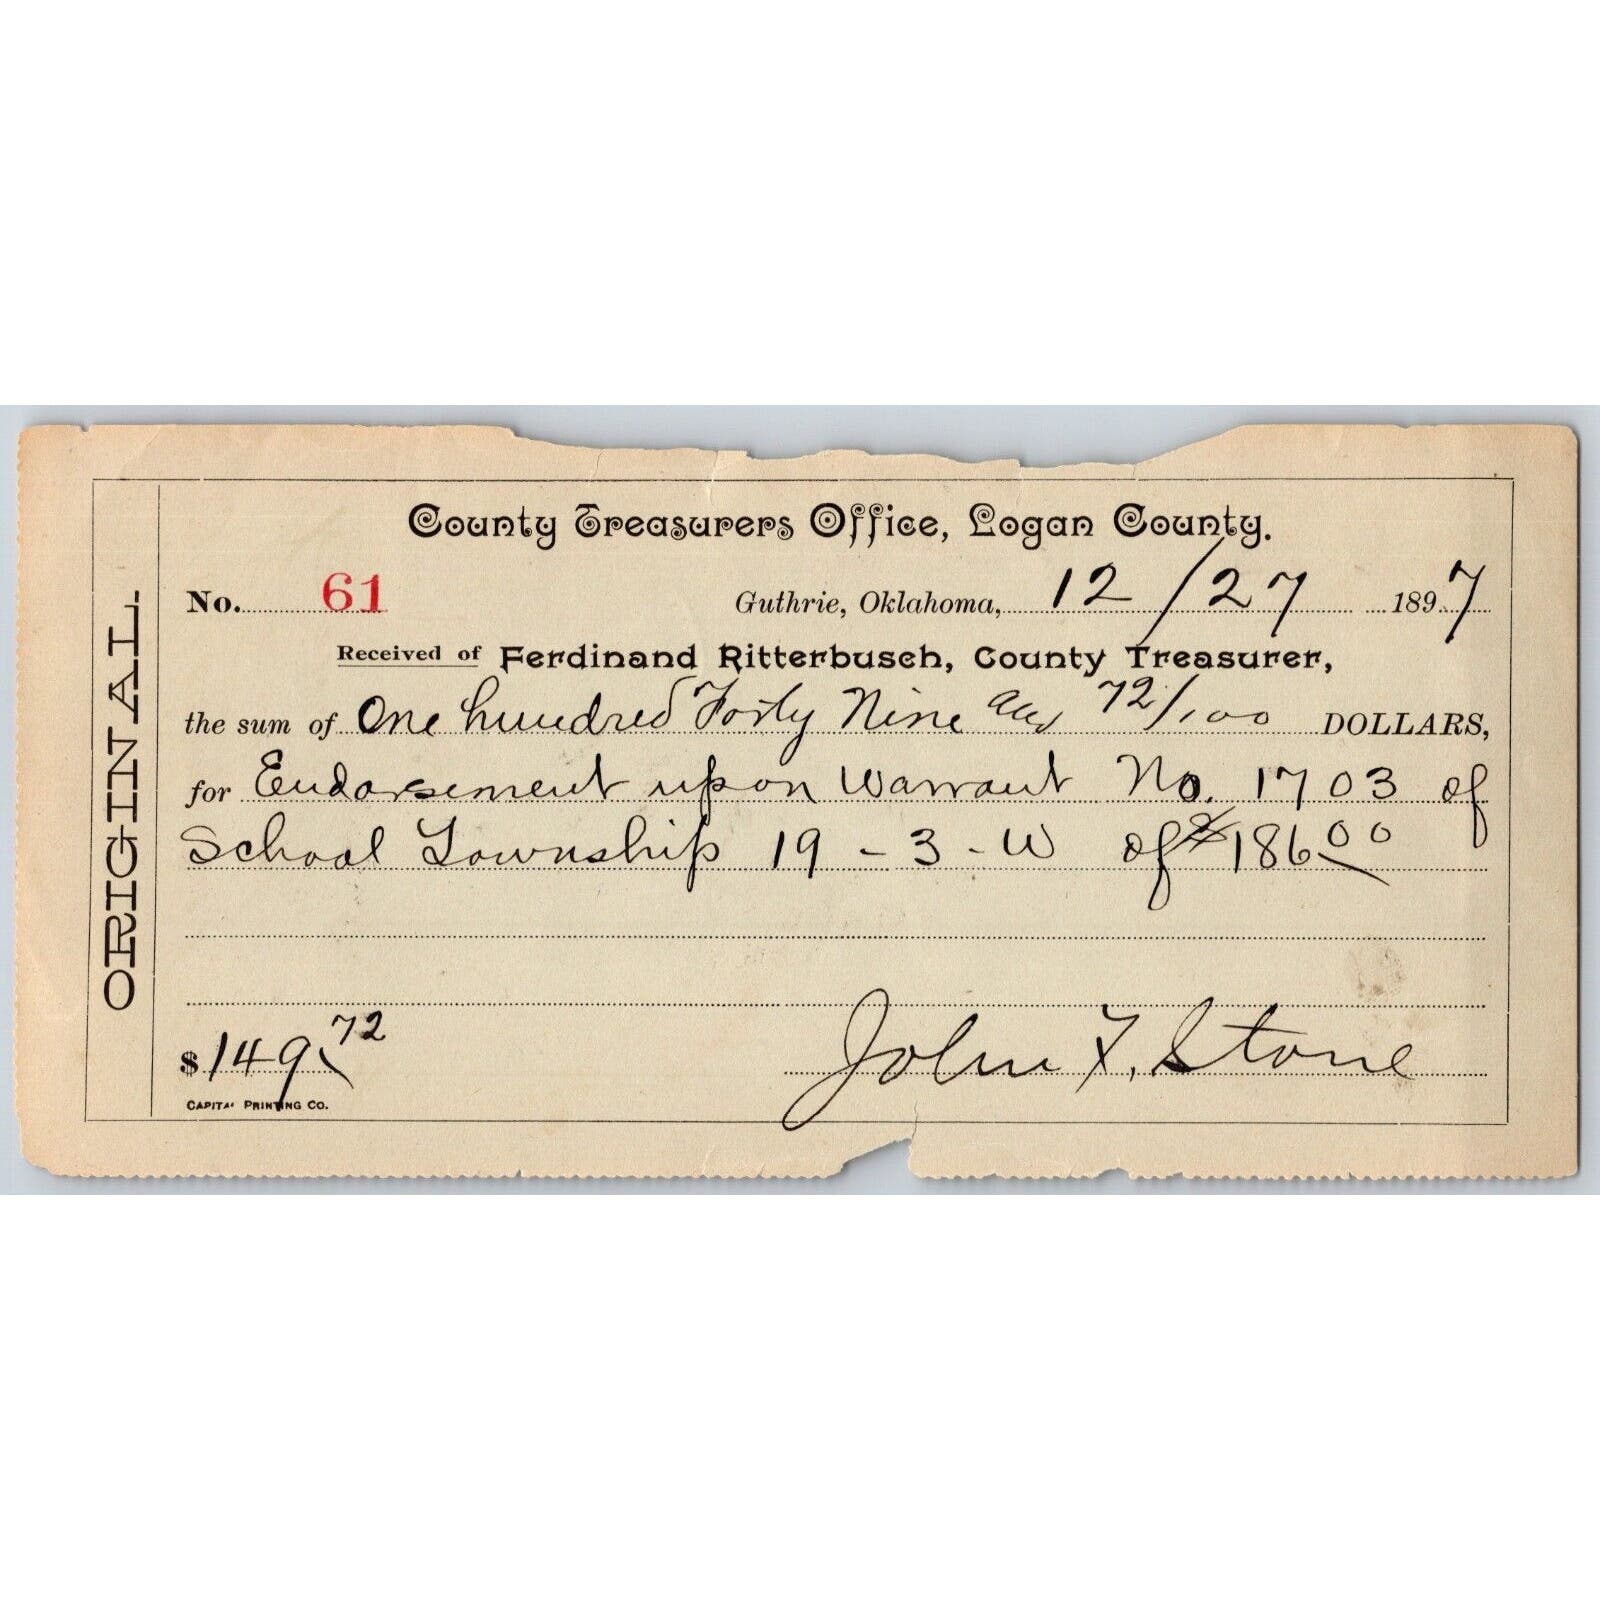 County Treasurers Office, Logan County.
No. 61 Guthrie, Oklahoma, 12/27 1897
Received of Ferdinand Ritterbusch, County Treasurer,
the sum of One hundred Forty Nine and 72/100 DOLLARS,
for Endorsement upon Warrant No. 1703 of
School Township 19 - 3 - W of $186.00
$149.72 John F. Stone
CAPITAL PRINTING CO.
ORIGINAL.